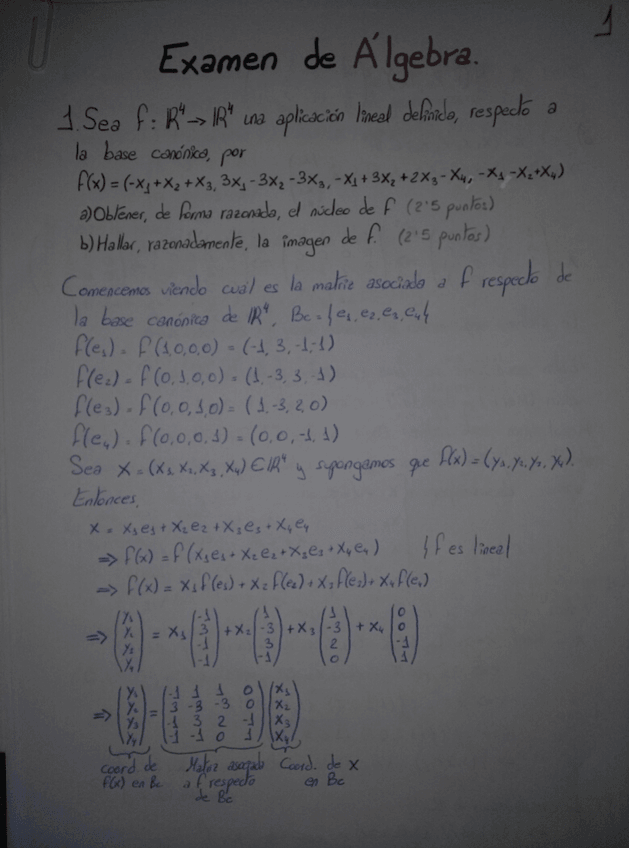 1
Examen de Álgebra.
1. Sea f: ℝ⁴ → ℝ⁴ una aplicación lineal definida, respecto a
la base canónica, por
f(x) = (-x₁+x₂+x₃, 3x₁-3x₂-3x₃, -x₁+3x₂+2x₃-x₄, -x₁-x₂+x₄)
a) Obtener, de forma razonada, el núcleo de f (2'5 puntos)
b) Hallar, razonadamente, la imagen de f. (2'5 puntos)
Comencemos viendo cuál es la matriz asociada a f respecto de
la base canónica de ℝ⁴, Bc = {e₁, e₂, e₃, e₄}
f(e₁) = f(1,0,0,0) = (-1, 3, -1, -1)
f(e₂) = f(0,1,0,0) = (1, -3, 3, -1)
f(e₃) = f(0,0,1,0) = (1, -3, 2, 0)
f(e₄) = f(0,0,0,1) = (0, 0, -1, 1)
Sea x = (x₁, x₂, x₃, x₄) ∈ ℝ⁴ y supongamos que f(x) = (y₁, y₂, y₃, y₄).
Entonces,
x = x₁e₁ + x₂e₂ + x₃e₃ + x₄e₄
⇒ f(x) = f(x₁e₁ + x₂e₂ + x₃e₃ + x₄e₄) } f es lineal
⇒ f(x) = x₁f(e₁) + x₂f(e₂) + x₃f(e₃) + x₄f(e₄)
⇒ (y₁ y₂ y₃ y₄) = x₁ (-1 3 -1 -1) + x₂ (1 -3 3 -1) + x₃ (1 -3 2 0) + x₄ (0 0 -1 1)
y₁ -1 1 1 0 x₁
⇒ y₂ = 3 -3 -3 0 x₂
y₃ -1 3 2 -1 x₃
y₄ -1 -1 0 1 x₄
coord. de Matriz asociada Coord. de x
f(x) en Bc a f respecto en Bc
de Bc